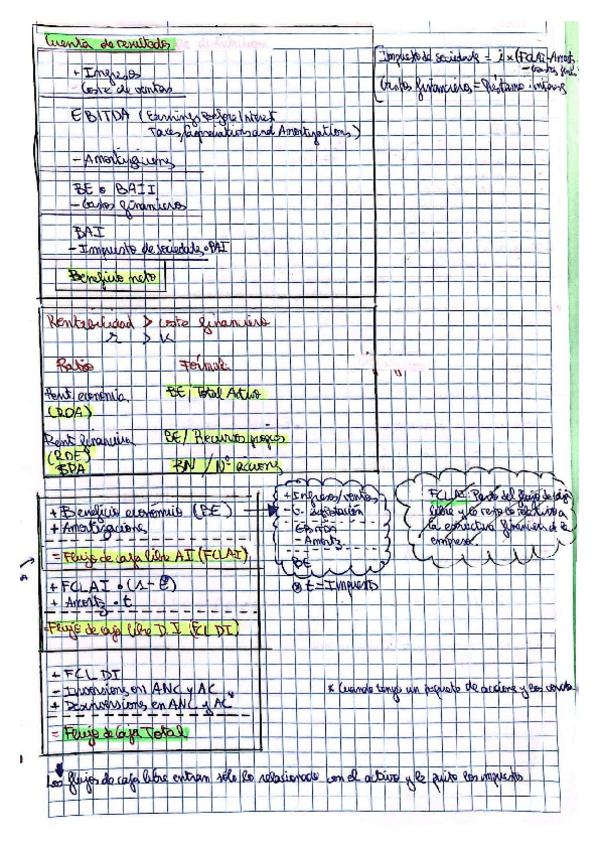 Cuenta de resultados
+ Ingresos
- Coste de ventas
EBITDA (Earnings Before Interest
Taxes, Depreciations and Amortizations)
- Amortizaciones
BE o BAII
- Gastos financieros
BAI
- Impuesto de sociedades · BAI
Beneficio neto
Impuesto de sociedades = t x (FCLAI - Amort.
- Gastos fin.)
Gastos financieros = Préstamo · interés
Rentabilidad > coste financiero
r > K
Ratio Fórmula
Rent economía BE / Total Activo
(ROA)
Rent financiera BE / Recursos propios
(ROE)
BPA BN / Nº acciones
+ Beneficio económico (BE)
+ Amortizaciones
= Flujo de caja libre AI (FCLAI)
+ FCLAI · (1 - t)
+ Amortz · t
= Flujo de caja libre D.I (FCL DI)
+ FCL DI
- Inversiones en ANC y AC
+ Desinversiones en ANC y AC
= Flujo de caja Total
+ Ingresos/ventas
- C. explotación
EBITDA
- Amortz
BE
t = Impuesto
FCLAI: Parte del flujo de caja
libre y lo
a
la estructura financiera de la
empresa
* Cuando tengo un paquete de acciones y las vendo
Los flujos de caja libre entran sólo lo relacionado con el activo y le quito los impuestos